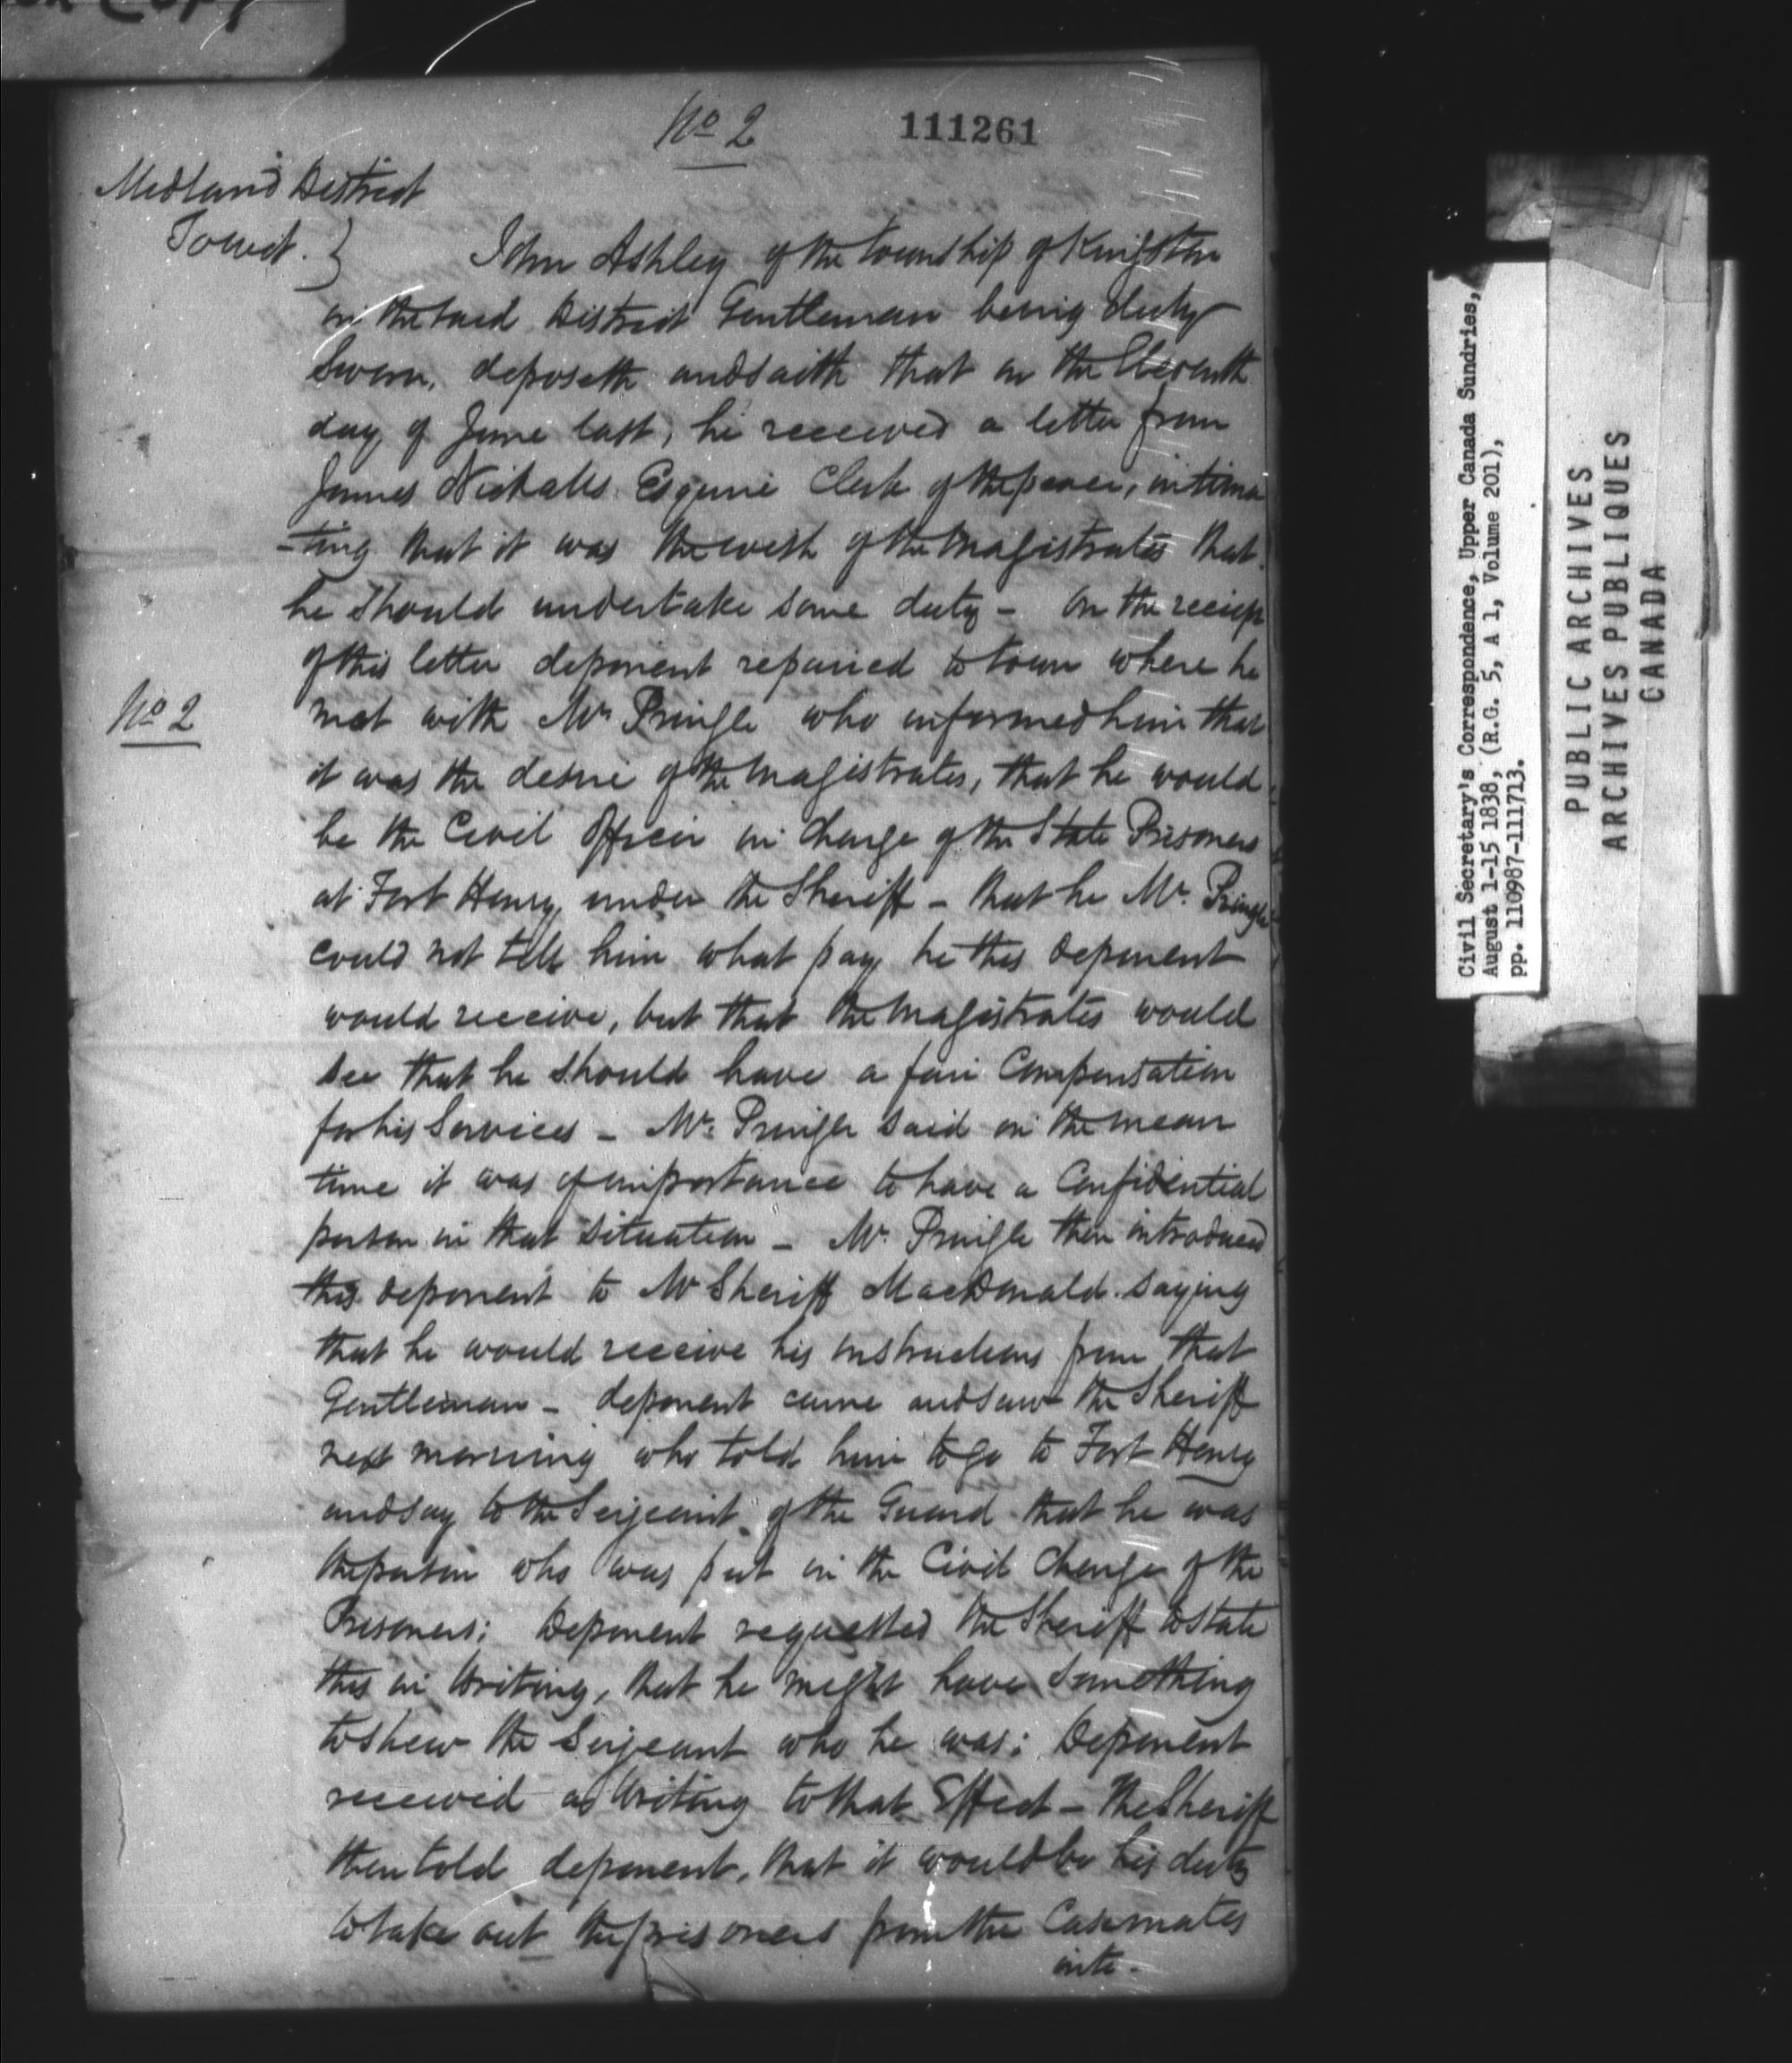 Copy
No 2
111261
Midland District
Towit. }
John Ashley of the township of Kingston
in the said District Gentleman being duly
Sworn, deposeth and saith that on the Eleventh
day of June last, he received a letter from
James Nickalls Esquire Clerk of the peace, intima
-ting that it was the wish of the Magistrates that
he should undertake some duty - On the receip
of this letter deponent repaired to town where he
No 2
met with Mr Pringle who informed him that
it was the desire of the Magistrates, that he would
be the Civil Officer in charge of the State Prisoners
at Fort Henry, under the Sheriff - that he Mr. Pringle
could not tell him what pay he this deponent
would receive, but that the Magistrates would
see that he should have a fair Compensation
for his Services - Mr. Pringle said in the mean
time it was of importance to have a Confidential
person in that situation - Mr. Pringle then introduced
this deponent to Mr Sheriff MacDonald saying
that he would receive his instructions from that
Gentleman - deponent came and saw the Sheriff
next morning who told him to go to Fort Henry
and say to the Serjeant of the Guard that he was
the person who was put in the Civil Charge of the
Prisoners: Deponent requested the Sheriff to state
this in Writing, that he might have something
to shew the Serjeant who he was: Deponent
received a Writing to that Effect - The Sheriff
then told deponent, that it would be his duty
to take out the prisoners from the Casemates
into -
Civil Secretary's Correspondence, Upper Canada Sundries,
August 1-15 1838, (R.G. 5, A 1, Volume 201),
pp. 110987-111713.
PUBLIC ARCHIVES
ARCHIVES PUBLIQUES
CANADA